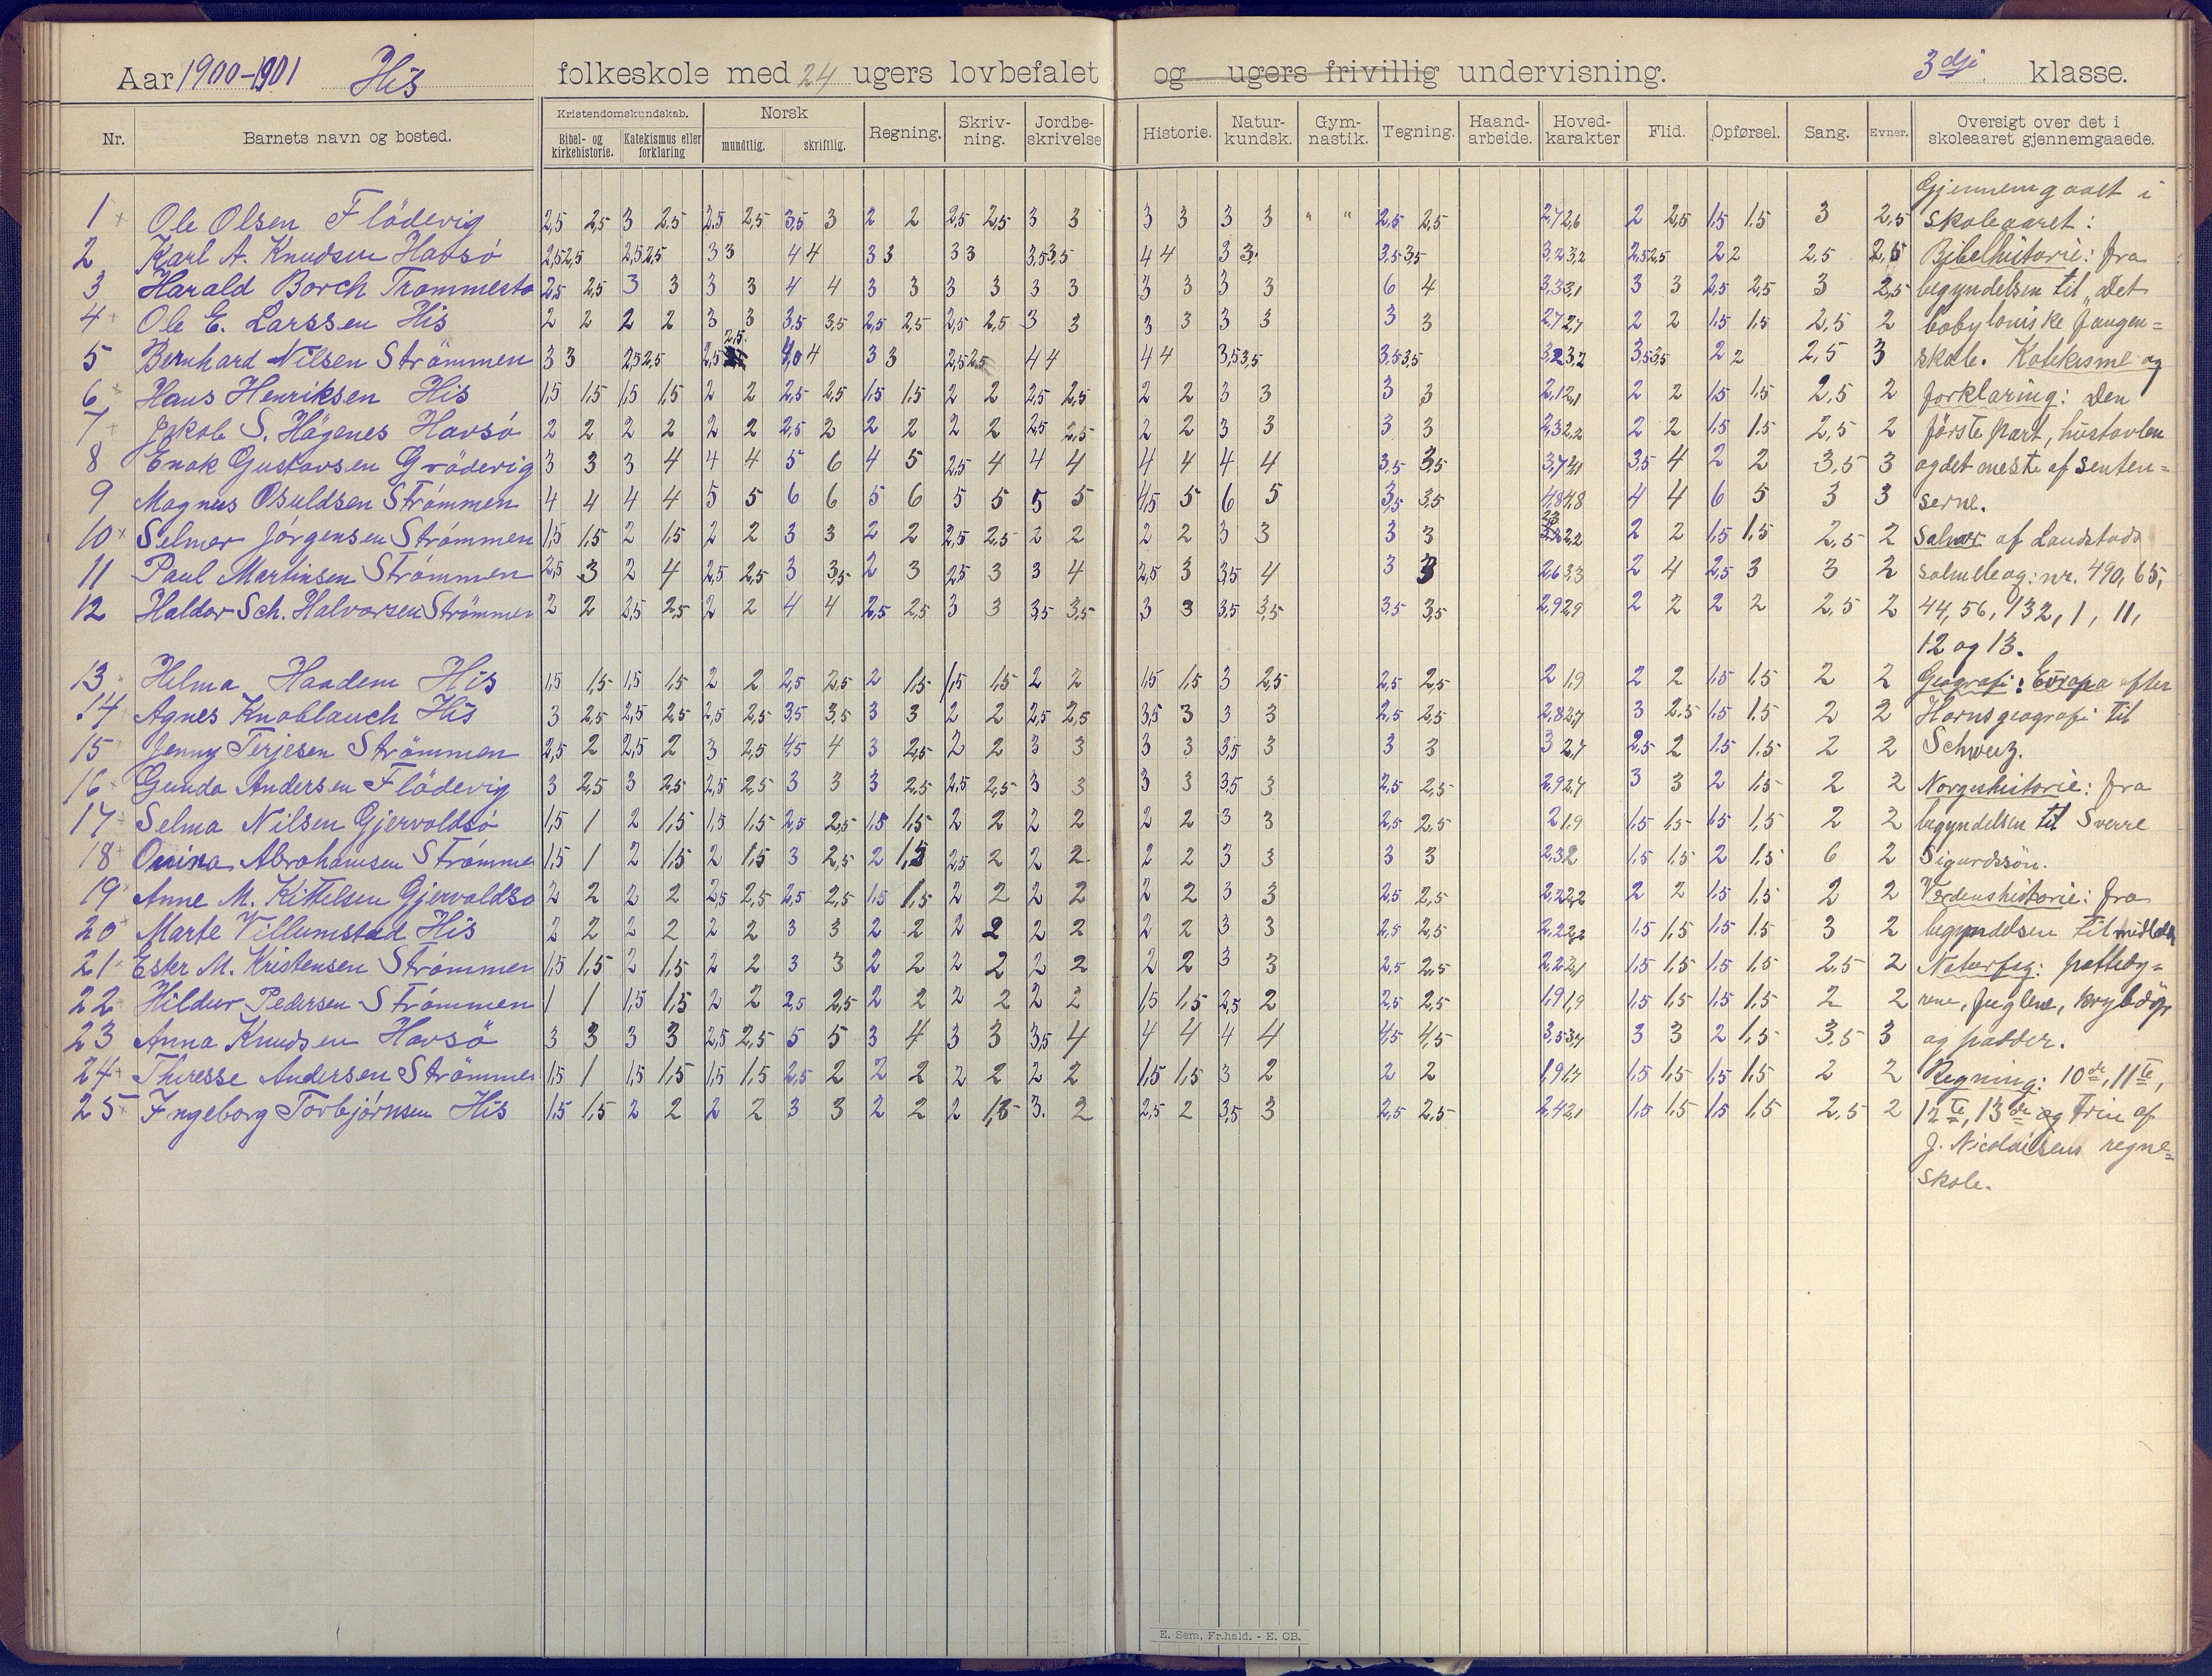 Aar 1900-1901 His folkeskole med 24 ugers lovbefalet og ugers frivillig undervisning. 3dje klasse.
Nr. Barnets navn og bosted. Kristendomskundskab. Bibel- og kirkehistorie. Katekismus eller forklaring Norsk mundtlig. skriftlig. Regning. Skriv-ning. Jordbe-skrivelse Historie. Natur-kundsk. Gym-nastik. Tegning. Haand-arbeide. Hoved-karakter Flid. Opførsel. Sang. Evner. Oversigt over det i skoleaaret gjennemgaaede.
Gjennemgaaet i
1 Ole Olsen Flödevig 2,5 2,5 3 2,5 2,5 2,5 3,5 3 2 2 2,5 2,5 3 3 3 3 3 3 " " 2,5 2,5 2,7 2,6 2 2,5 1,5 1,5 3 2,5 skoleaaret:
2 Karl A. Knudsen Havsö 2,5 2,5 2,5 2,5 3 3 4 4 3 3 3 3 3,5 3,5 4 4 3 3 3,5 3,5 3,2 3,2 2,5 2,5 2 2 2,5 2,5 Bibelhistorie: fra
3 Harald Borch Trommesto 2,5 2,5 3 3 3 3 4 4 3 3 3 3 3 3 3 3 3 3 6 4 3,3 3,1 3 3 2,5 2,5 3 2,5 begyndelsen til "Det
4 Ole E. Larssen His 2 2 2 2 3 3 3,5 3,5 2,5 2,5 2,5 2,5 3 3 3 3 3 3 3 3 2,7 2,7 2 2 1,5 1,5 2,5 2 babyloniske fangen=
5 Bernhard Nilsen Strömmen 3 3 2,5 2,5 2,5 2,5 4,0 4 3 3 2,5 2,5 4 4 4 4 3,5 3,5 3,5 3,5 3,2 3,2 3,5 3,5 2 2 2,5 3 skab. Katekisme og
6 Hans Henriksen His 1,5 1,5 1,5 1,5 2 2 2,5 2,5 1,5 1,5 2 2 2,5 2,5 2 2 3 3 3 3 2,1 2,1 2 2 1,5 1,5 2,5 2 forklaring: Den
7 Jakob S. Högenes Havsö 2 2 2 2 2 2 2,5 2 2 2 2 2 2,5 2,5 2 2 3 3 3 3 2,3 2,2 2 2 1,5 1,5 2,5 2 förste part, hustavlen
8 Enok Gustavsen Grödevig 3 3 3 4 4 4 5 6 4 5 2,5 4 4 4 4 4 4 4 3,5 3,5 3,7 3,5 4 2 2 3,5 3 og det meste af senten=
9 Magnus Osuldsen Strömmen 4 4 4 4 5 5 6 6 5 6 5 5 5 5 4,5 5 6 5 3,5 3,5 4,8 4,8 4 4 6 5 3 3 serne.
10 Selmer Jörgensen Strömmen 1,5 1,5 2 1,5 2 2 3 3 2 2 2,5 2,5 2 2 2 2 3 3 3 3 2,3 2,2 2 2 1,5 1,5 2,5 2 Salmer af Landstads
11 Paul Martinsen Strömmen 2,5 3 2 4 2,5 2,5 3 3,5 2 3 2,5 3 3 4 2,5 3 3,5 4 3 3 2,6 3,3 2 4 2,5 3 3 2 salmebog: nr. 490, 65,
12 Haldor Sch. Halvorsen Strömmen 2 2 2,5 2,5 2 2 4 4 2,5 2,5 3 3 3,5 3,5 3 3 3,5 3,5 3,5 3,5 2,9 2,9 2 2 2 2 2,5 2 44, 56, 132, 1, 11,
12 og 13.
13 Helma Haadem His 1,5 1,5 1,5 1,5 2 2 2,5 2,5 2 1,5 1,5 1,5 2 2 1,5 1,5 3 2,5 2,5 2,5 2 1,9 2 2 1,5 1,5 2 2 Geografi: Europa efter
14 Agnes Knoblauch His 3 2,5 2,5 2,5 2,5 2,5 3,5 3,5 3 3 2 2 2,5 2,5 3,5 3 3 3 2,5 2,5 2,8 2,7 3 2,5 1,5 1,5 2 2 Horns geografi til
15 Jenny Terjesen Strömmen 2,5 2 2,5 2 3 2,5 4,5 4 3 2,5 2 2 3 3 3 3 3,5 3 3 3 3 2,7 2,5 2 1,5 1,5 2 2 Schweiz.
16 Gunda Andersen Flödevig 3 2,5 3 2,5 2,5 2,5 3 3 3 2,5 2,5 2,5 3 3 3 3 3,5 3 2,5 2,5 2,9 2,7 3 3 2 1,5 2 2 Norgeshistorie: fra
17 Selma Nilsen Gjervoldsö 1,5 1 2 1,5 1,5 1,5 2,5 2,5 1,5 1,5 2 2 2 2 2 2 3 3 2,5 2,5 2 1,9 1,5 1,5 1,5 1,5 2 2 begyndelsen til Sverre
18 Onina Abrahamsen Strömme 1,5 1 2 1,5 2 1,5 3 2,5 2 1,5 2,5 2 2 2 2 2 3 3 3 3 2,3 2 1,5 1,5 2 1,5 6 2 Sigurdssön.
19 Anne M. Kittelsen Gjervoldsö 2 2 2 2 2,5 2,5 2,5 2,5 1,5 1,5 2 2 2 2 2 2 3 3 2,5 2,5 2,2 2,2 2 2 1,5 1,5 2 2 Verdenshistorie: fra
20 Marte Villumstad His 2 2 2 2 2 2 3 3 2 2 2 2 2 2 2 2 3 3 2,5 2,5 2,2 2,2 1,5 1,5 1,5 1,5 3 2 begyndelsen til
21 Ester M. Kristensen Strömmen 1,5 1,5 2 1,5 2 2 3 3 2 2 2 2 2 2 2 2 3 3 2,5 2,5 2,2 2,1 1,5 1,5 1,5 1,5 2,5 2 Naturfag: pattedy=
22 Hildur Pedersen Strömmen 1 1 1,5 1,5 2 2 2,5 2,5 2 2 2 2 2 2 1,5 1,5 2,5 2 2,5 2,5 1,9 1,9 1,5 1,5 1,5 1,5 2 2 rene, fuglene, krybdyr
23 Anna Knudsen Havsö 3 3 3 3 2,5 2,5 5 5 3 4 3 3 3,5 4 4 4 4 4 4,5 4,5 3,5 3,7 3 3 2 1,5 3,5 3 og padder.
24 Theresse Andersen Strömmen 1,5 1 1,5 1,5 1,5 1,5 2,5 2 2 2 2 2 2 2 1,5 1,5 3 2 2 2 1,9 1,7 1,5 1,5 1,5 1,5 2 2 Regning: 10de, 11te,
25 Ingeborg Torbjörnsen His 1,5 1,5 2 2 2 2 3 3 2 2 2 1,5 3 2 2,5 2 3,5 3 2,5 2,5 2,4 2,1 1,5 1,5 1,5 1,5 2,5 2 12te, 13de og Trin af
J. Nicolaisens regne=
skole.
E. Sem, Fr.hald. - E. CB.